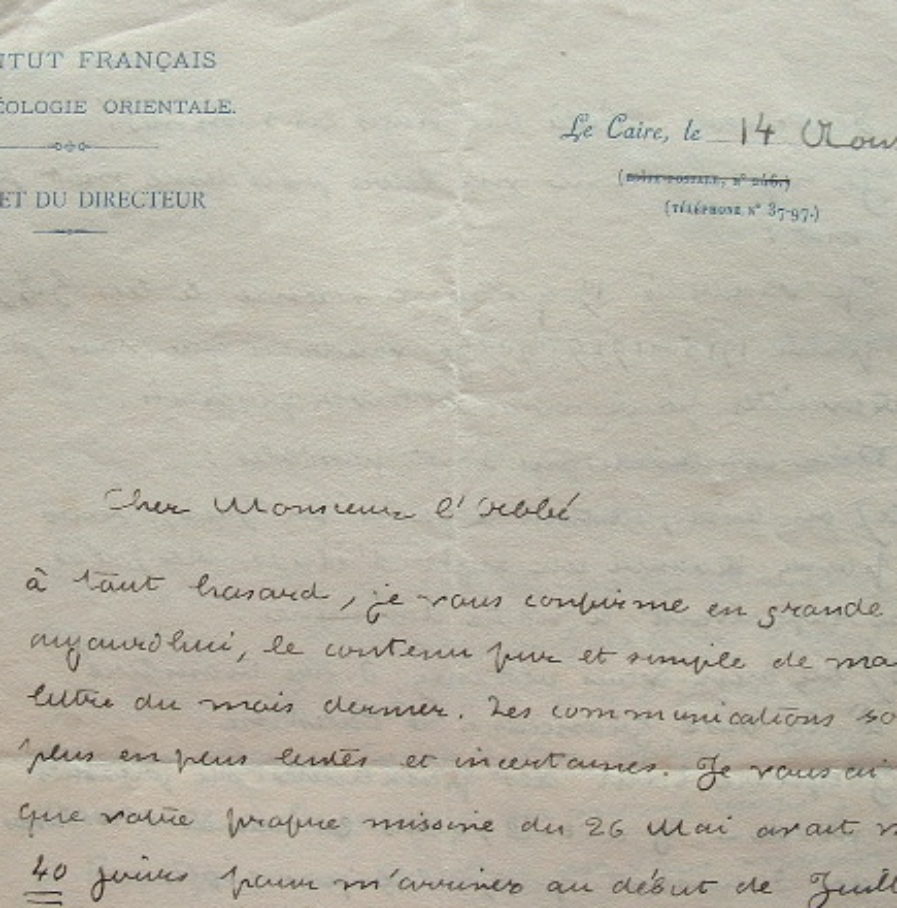 TUT FRANÇAIS
ÉOLOGIE ORIENTALE.
ET DU DIRECTEUR
Le Caire, le 14 Aou
(BOÎTE POSTALE, N° 246.)
(TÉLÉPHONE N° 37-97.)
Cher Monsieur l'Abbé
à tout hasard, je vous confirme en grande
aujourd'hui, le contenu pur et simple de ma
lettre du mois dernier. Les communications so
plus en plus lentes et incertaines. Je vous ai
que votre propre missive du 26 Mai avait m
40 jours pour m'arriver au début de Juill